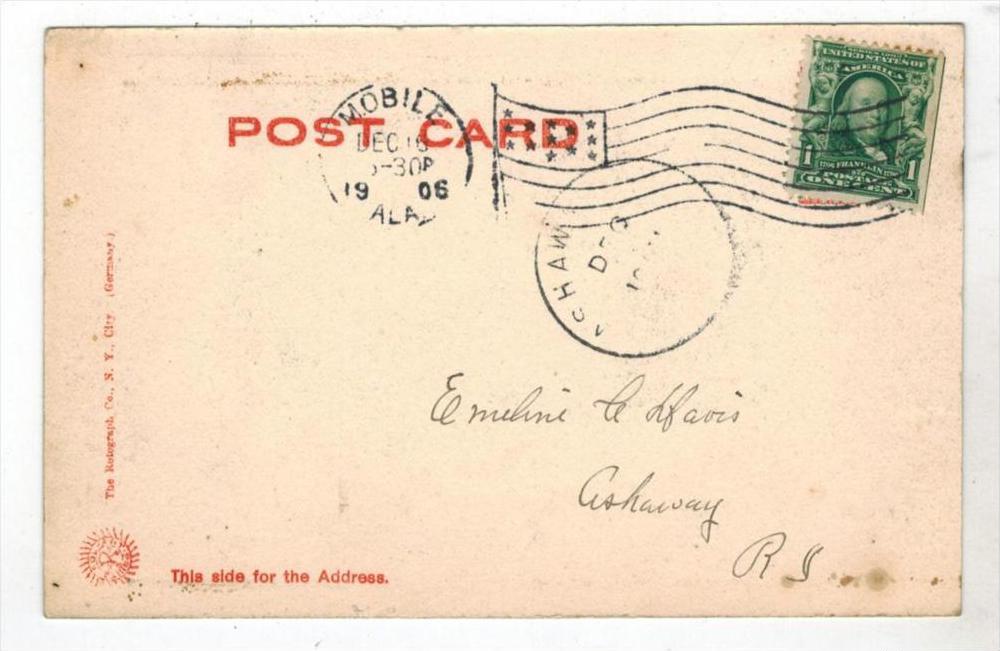 POST CARD
MOBILE
DEC 16
-30P
19 06
ALA.
SERIES 1902
UNITED STATES OF
AMERICA
1 1706 FRANKLIN 1790 1
POSTAGE
ONE CENT
ASHAW
DEC
The Rotograph Co., N. Y., City. (Germany.)
Emeline C Davis
Ashaway
R I
This side for the Address.